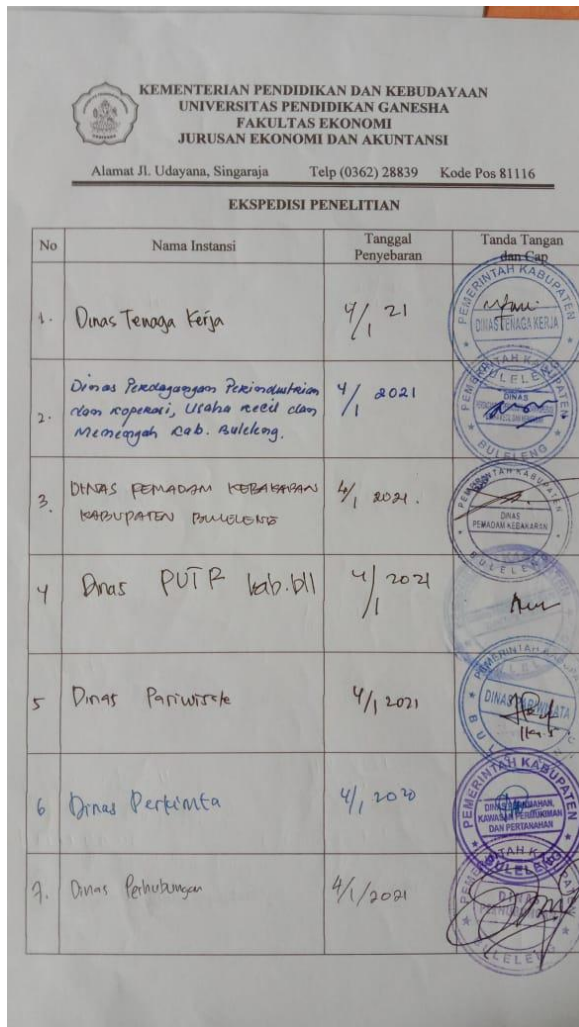 KEMENTERIAN PENDIDIKAN DAN KEBUDAYAAN
UNIVERSITAS PENDIDIKAN GANESHA
FAKULTAS EKONOMI
JURUSAN EKONOMI DAN AKUNTANSI
Alamat Jl. Udayana, Singaraja Telp (0362) 28839 Kode Pos 81116
EKSPEDISI PENELITIAN
No Nama Instansi Tanggal Penyebaran Tanda Tangan dan Cap
1. Dinas Tenaga Kerja 4/1 21
PEMERINTAH KABUPATEN
DINAS TENAGA KERJA
BULELENG
2. Dinas Perdagangan Perindustrian
dan Koperasi, Usaha Kecil dan
Menengah Kab. Buleleng. 4/1 2021
DINAS
BULELENG
3. DINAS PEMADAM KEBAKARAN
KABUPATEN BULELENG 4/1 2021.
DINAS
PEMADAM KEBAKARAN
BULELENG
4 Dinas PUTR kab.bll 4/1 2021
5 Dinas Pariwisata 4/1 2021
DINAS PARIWISATA
6 Dinas Perkimta 4/1 2020
PEMERINTAH KABUPATEN
KAWASAN PERMUKIMAN
DAN PERTANAHAN
BULELENG
7. Dinas Perhubungan 4/1/2021
BULELENG